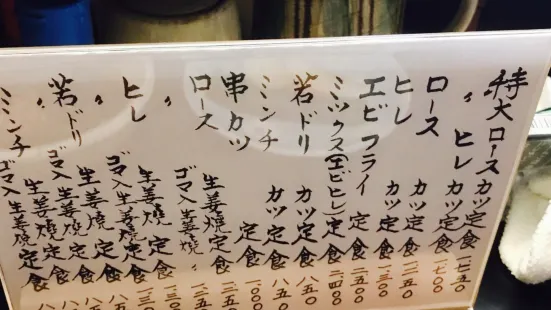 特大ロースカツ定食 一.七五〇
〃 ヒレカツ定食 一.七〇〇
ロース カツ定食 一.二五〇
ヒレ カツ定食 一.三〇〇
エビフライ 定食 一.五〇〇
ミックス(エビヒレ)定食 一.四〇〇
若ドリ カツ定食 八五〇
ミンチ カツ定食 八五〇
串カツ 定食 一.〇〇〇
ロース 生姜焼定食 一.二五〇
〃 ゴマ入生姜焼〃 一.二五〇
ヒレ 生姜焼定食 一.三〇
〃 ゴマ入生姜焼定食 一.三〇
若ドリ 生姜焼定食 八五
〃 ゴマ入生姜焼定食 八五
ミンチ 生姜焼定食 八
ゴマ入生姜焼定食